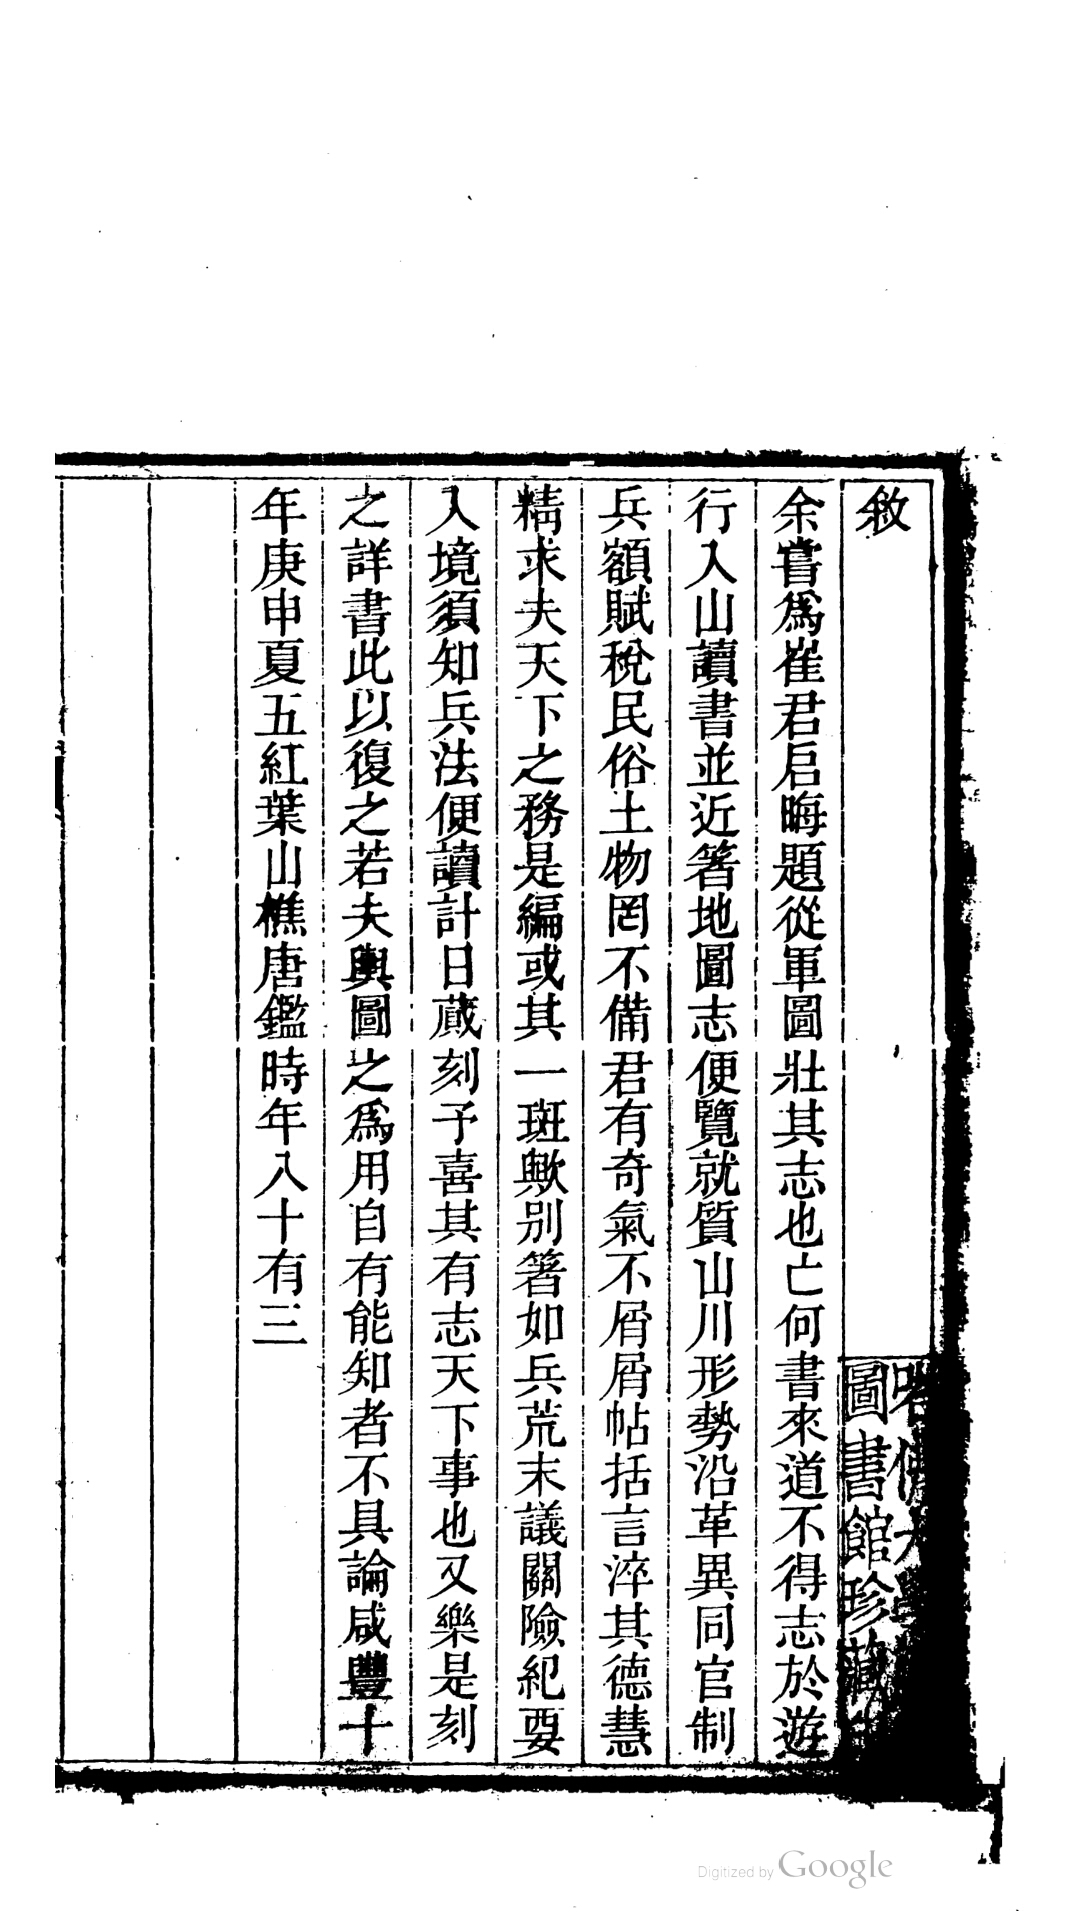 敘
余嘗爲崔君启晦題從軍圖壯其志也亡何書來道不得志於遊
行入山讀書並近箸地圖志便覽就質山川形勢沿革異同官制
兵額賦稅民俗土物罔不備君有奇氣不屑屑帖括言淬其德慧
精求夫天下之務是編或其一斑歟别箸如兵荒末議關險紀要
入境須知兵法便讀計日蕆刻予喜其有志天下事也又樂是刻
之詳書此以復之若夫輿圖之爲用自有能知者不具論咸豐十
年庚申夏五紅葉山樵唐鑑時年八十有三
圖書館珍藏
Digitized by Google